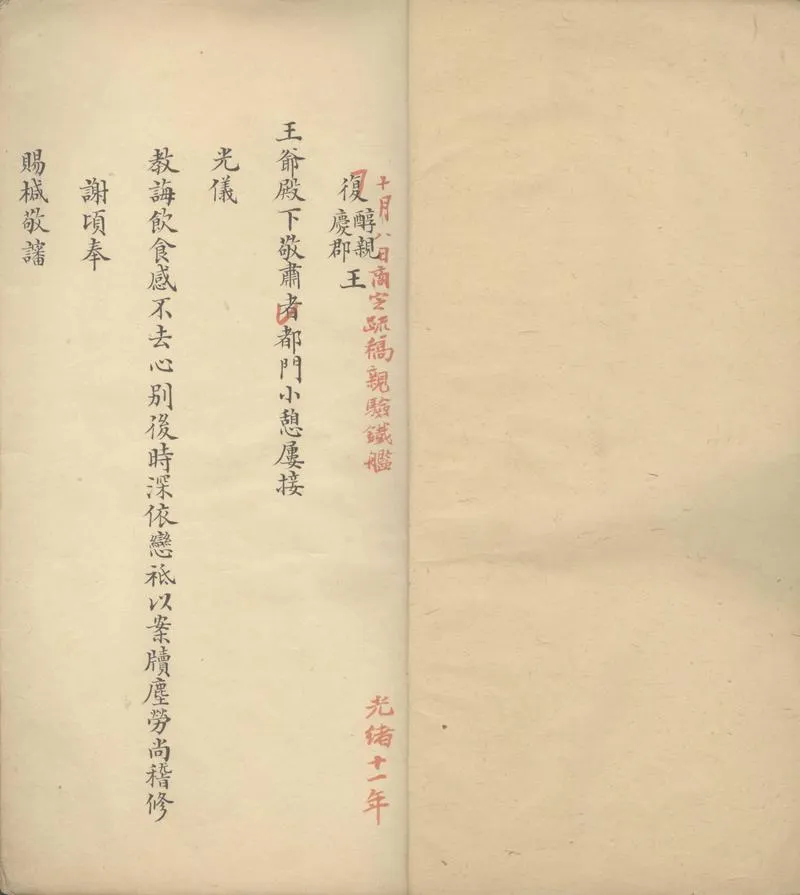 十月八日商定疏稿親驗鐵艦
光緒十一年
復醇親王
慶郡
王爺殿下敬肅者都門小憩屢接
光儀
教誨飲食感不去心別後時深依戀祗以案牘塵勞尚稽修
謝頃奉
賜椷敬讅